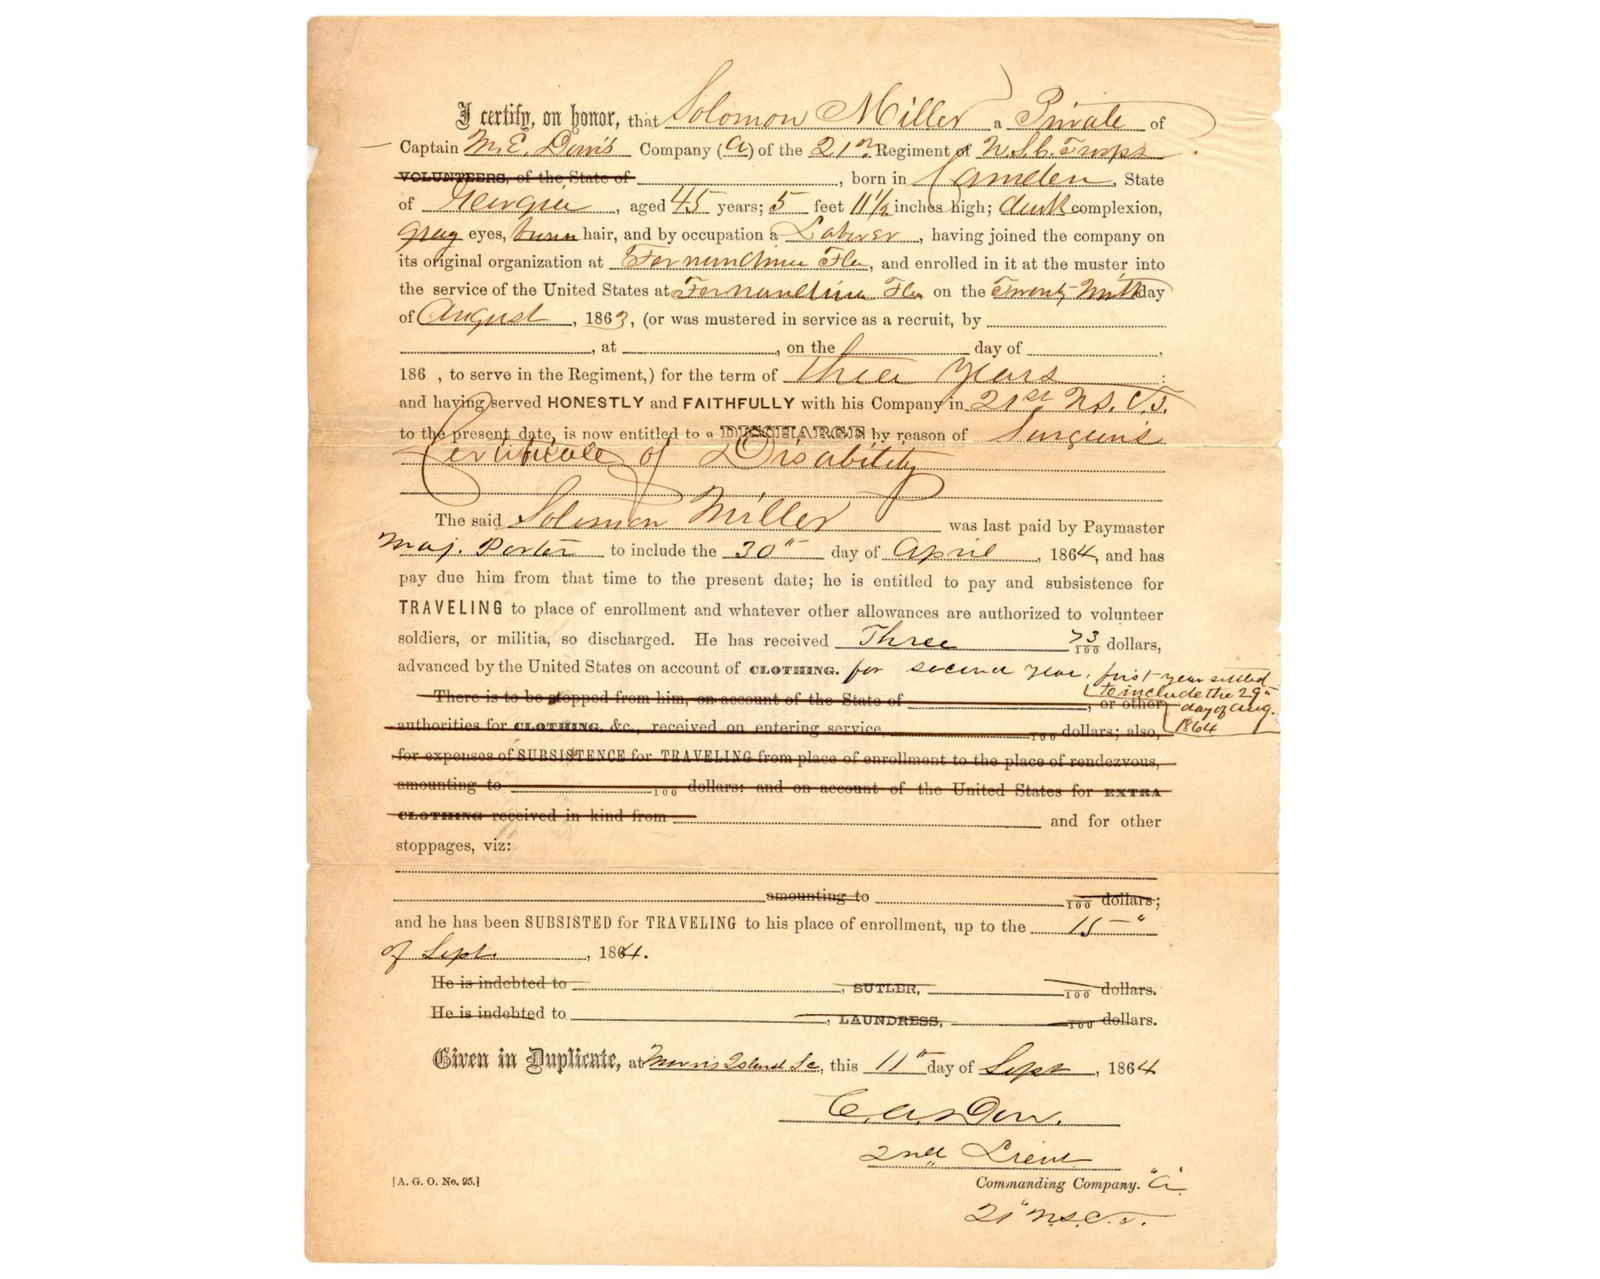 I certify, on honor, that Solomon Miller a Private of
Captain M. E. Davis Company (A) of the 21st Regiment of U.S.C. Troops
VOLUNTEERS, of the State of , born in Camden, State
of Georgia, aged 45 years; 5 feet 11½ inches high; dark complexion,
gray eyes, hair, and by occupation a Laborer, having joined the company on
its original organization at Fernandina Fla, and enrolled in it at the muster into
the service of the United States at Fernandina Fla on the Twenty Ninth day
of August, 1863, (or was mustered in service as a recruit, by
, at , on the day of ,
186 , to serve in the Regiment,) for the term of three years :
and having served HONESTLY and FAITHFULLY with his Company in 21st U.S.C.T.
to the present date, is now entitled to a DISCHARGE by reason of Surgeon's
Certificate of Disability
The said Solomon Miller was last paid by Paymaster
Maj. Porter to include the 30th day of April, 1864, and has
pay due him from that time to the present date; he is entitled to pay and subsistence for
TRAVELING to place of enrollment and whatever other allowances are authorized to volunteer
soldiers, or militia, so discharged. He has received Three 73/100 dollars,
advanced by the United States on account of CLOTHING. for second year, first year settled
to include the 29th
There is to be stopped from him, on account of the State of , or other
day of Aug.
1864
authorities for CLOTHING, &c., received on entering service, 100 dollars; also,
for expenses of SUBSISTENCE for TRAVELING from place of enrollment to the place of rendezvous,
amounting to 100 dollars: and on account of the United States for EXTRA
CLOTHING received in kind from and for other
stoppages, viz:
amounting to 100 dollars;
and he has been SUBSISTED for TRAVELING to his place of enrollment, up to the 15"
of Sept. , 1864.
He is indebted to , SUTLER, 100 dollars.
He is indebted to , LAUNDRESS, 100 dollars.
Given in Duplicate, at Morris Island Sc, this 11th day of Sept, 1864
C. A. Dow.
2nd Lieut
[A. G. O. No. 95.]
Commanding Company. "A"
21" U.S.C.T.